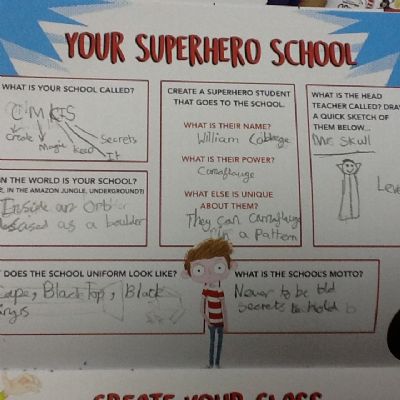 YOUR SUPERHERO SCHOOL
WHAT IS YOUR SCHOOL CALLED?
Create
Magic
Keep
Secrets
It
CREATE A SUPERHERO STUDENT
THAT GOES TO THE SCHOOL.
WHAT IS THEIR NAME?
William
WHAT IS THEIR POWER?
Camaflauge
WHAT ELSE IS UNIQUE
ABOUT THEM?
They can camaflauge
in a pattern
WHAT IS THE HEAD
TEACHER CALLED? DRA
A QUICK SKETCH OF
THEM BELOW...
Mr Skull
Leve
IN THE WORLD IS YOUR SCHOOL?
E, IN THE AMAZON JUNGLE, UNDERGROUND?)
Inside an
as a boulder
DOES THE SCHOOL UNIFORM LOOK LIKE?
cape, Black Top, Black
WHAT IS THE SCHOOL'S MOTTO?
Never to be told
secrets to hold
CREATE YOUR CLASS